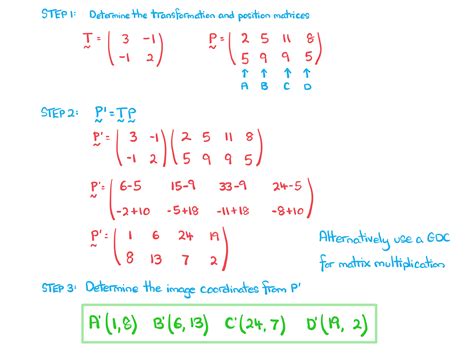 STEP 1: Determine the transformation and position matrices
T = ( 3 -1 P = ( 2 5 11 8
-1 2 ) 5 9 9 5 )
↑ ↑ ↑ ↑
A B C D
STEP 2: P' = TP
P' = ( 3 -1 ) ( 2 5 11 8
-1 2 5 9 9 5 )
P' = ( 6-5 15-9 33-9 24-5
-2+10 -5+18 -11+18 -8+10 )
P' = ( 1 6 24 19
8 13 7 2 )
Alternatively use a GDC
for matrix multiplication
STEP 3: Determine the image coordinates from P'
A'(1,8) B'(6,13) C'(24,7) D'(19, 2)